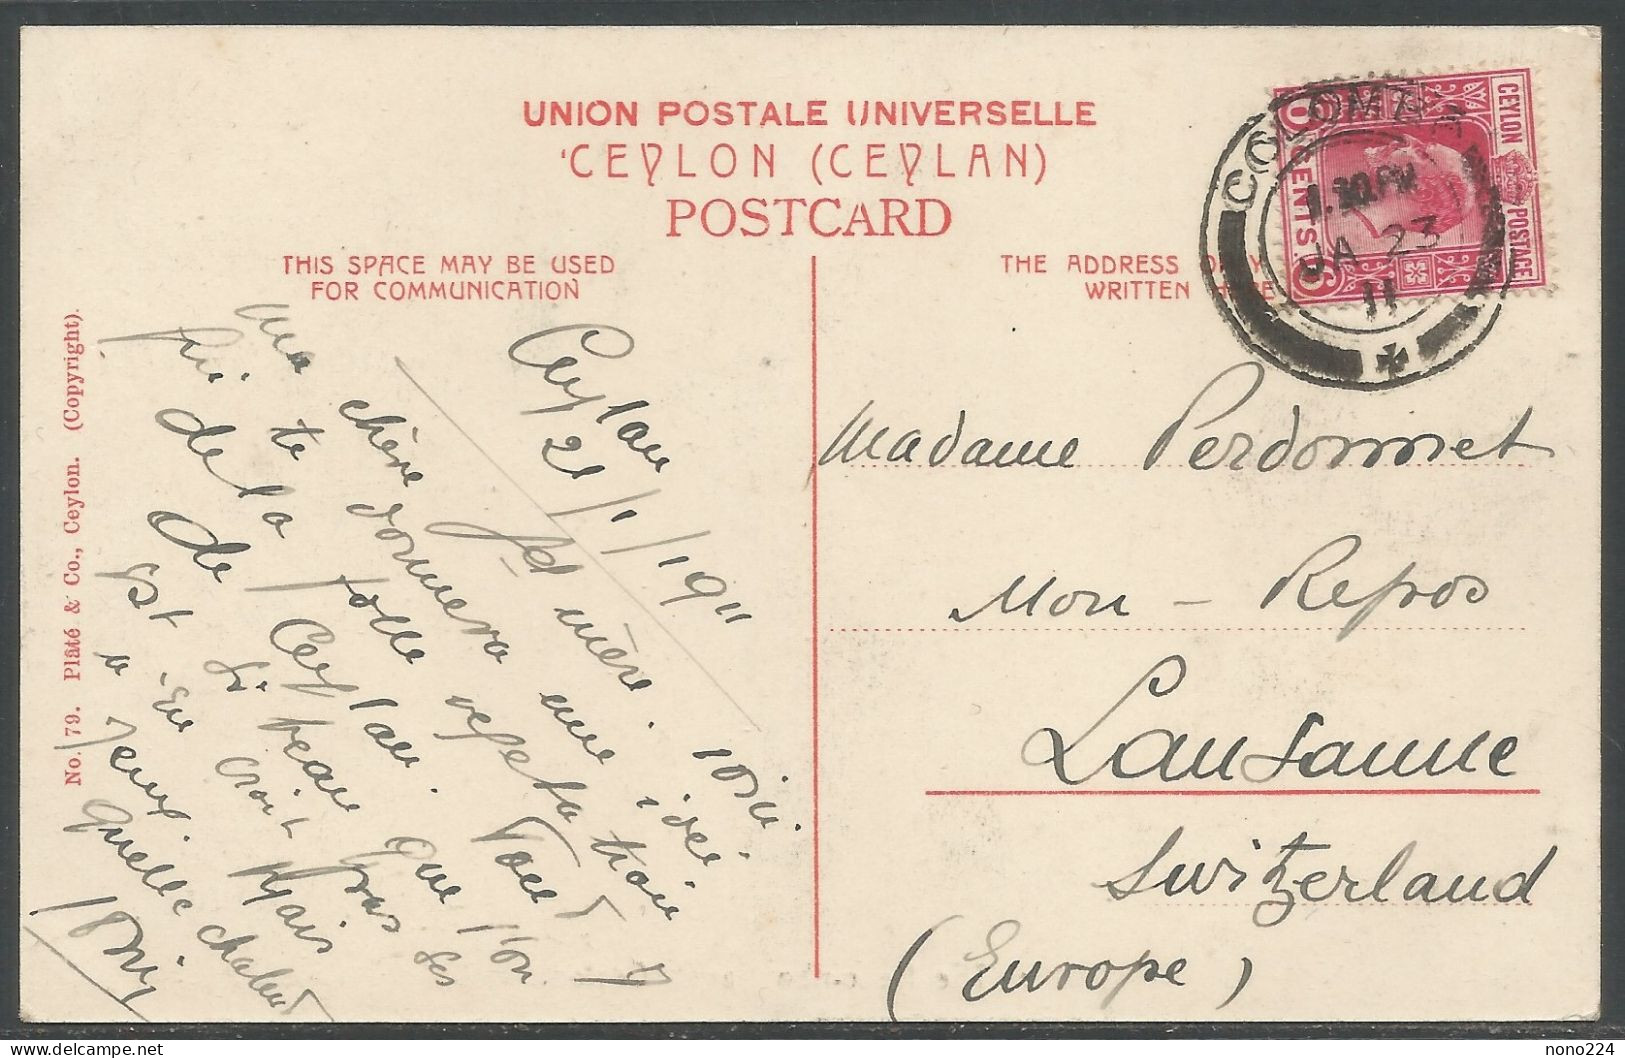 UNION POSTALE UNIVERSELLE
CEYLON (CEYLAN)
POSTCARD
THIS SPACE MAY BE USED
FOR COMMUNICATION
THE ADDRESS ONLY
WRITTEN HERE
CEYLON POSTAGE
6 CENTS 6
COLOMBO
1.30.PM
JA 23
11
No. 79. Plâté & Co., Ceylon. (Copyright).
Ceylan
21/1/1911
ma chère mère.
te donnera une idée
de la folle
de Ceylan. que l'on
est si beau
a en croit pas ses
yeux. Mais
quelle chaleur
Madame Perdonnet
Mon-Repos
Lausanne
Switzerland
(Europe)
nono224